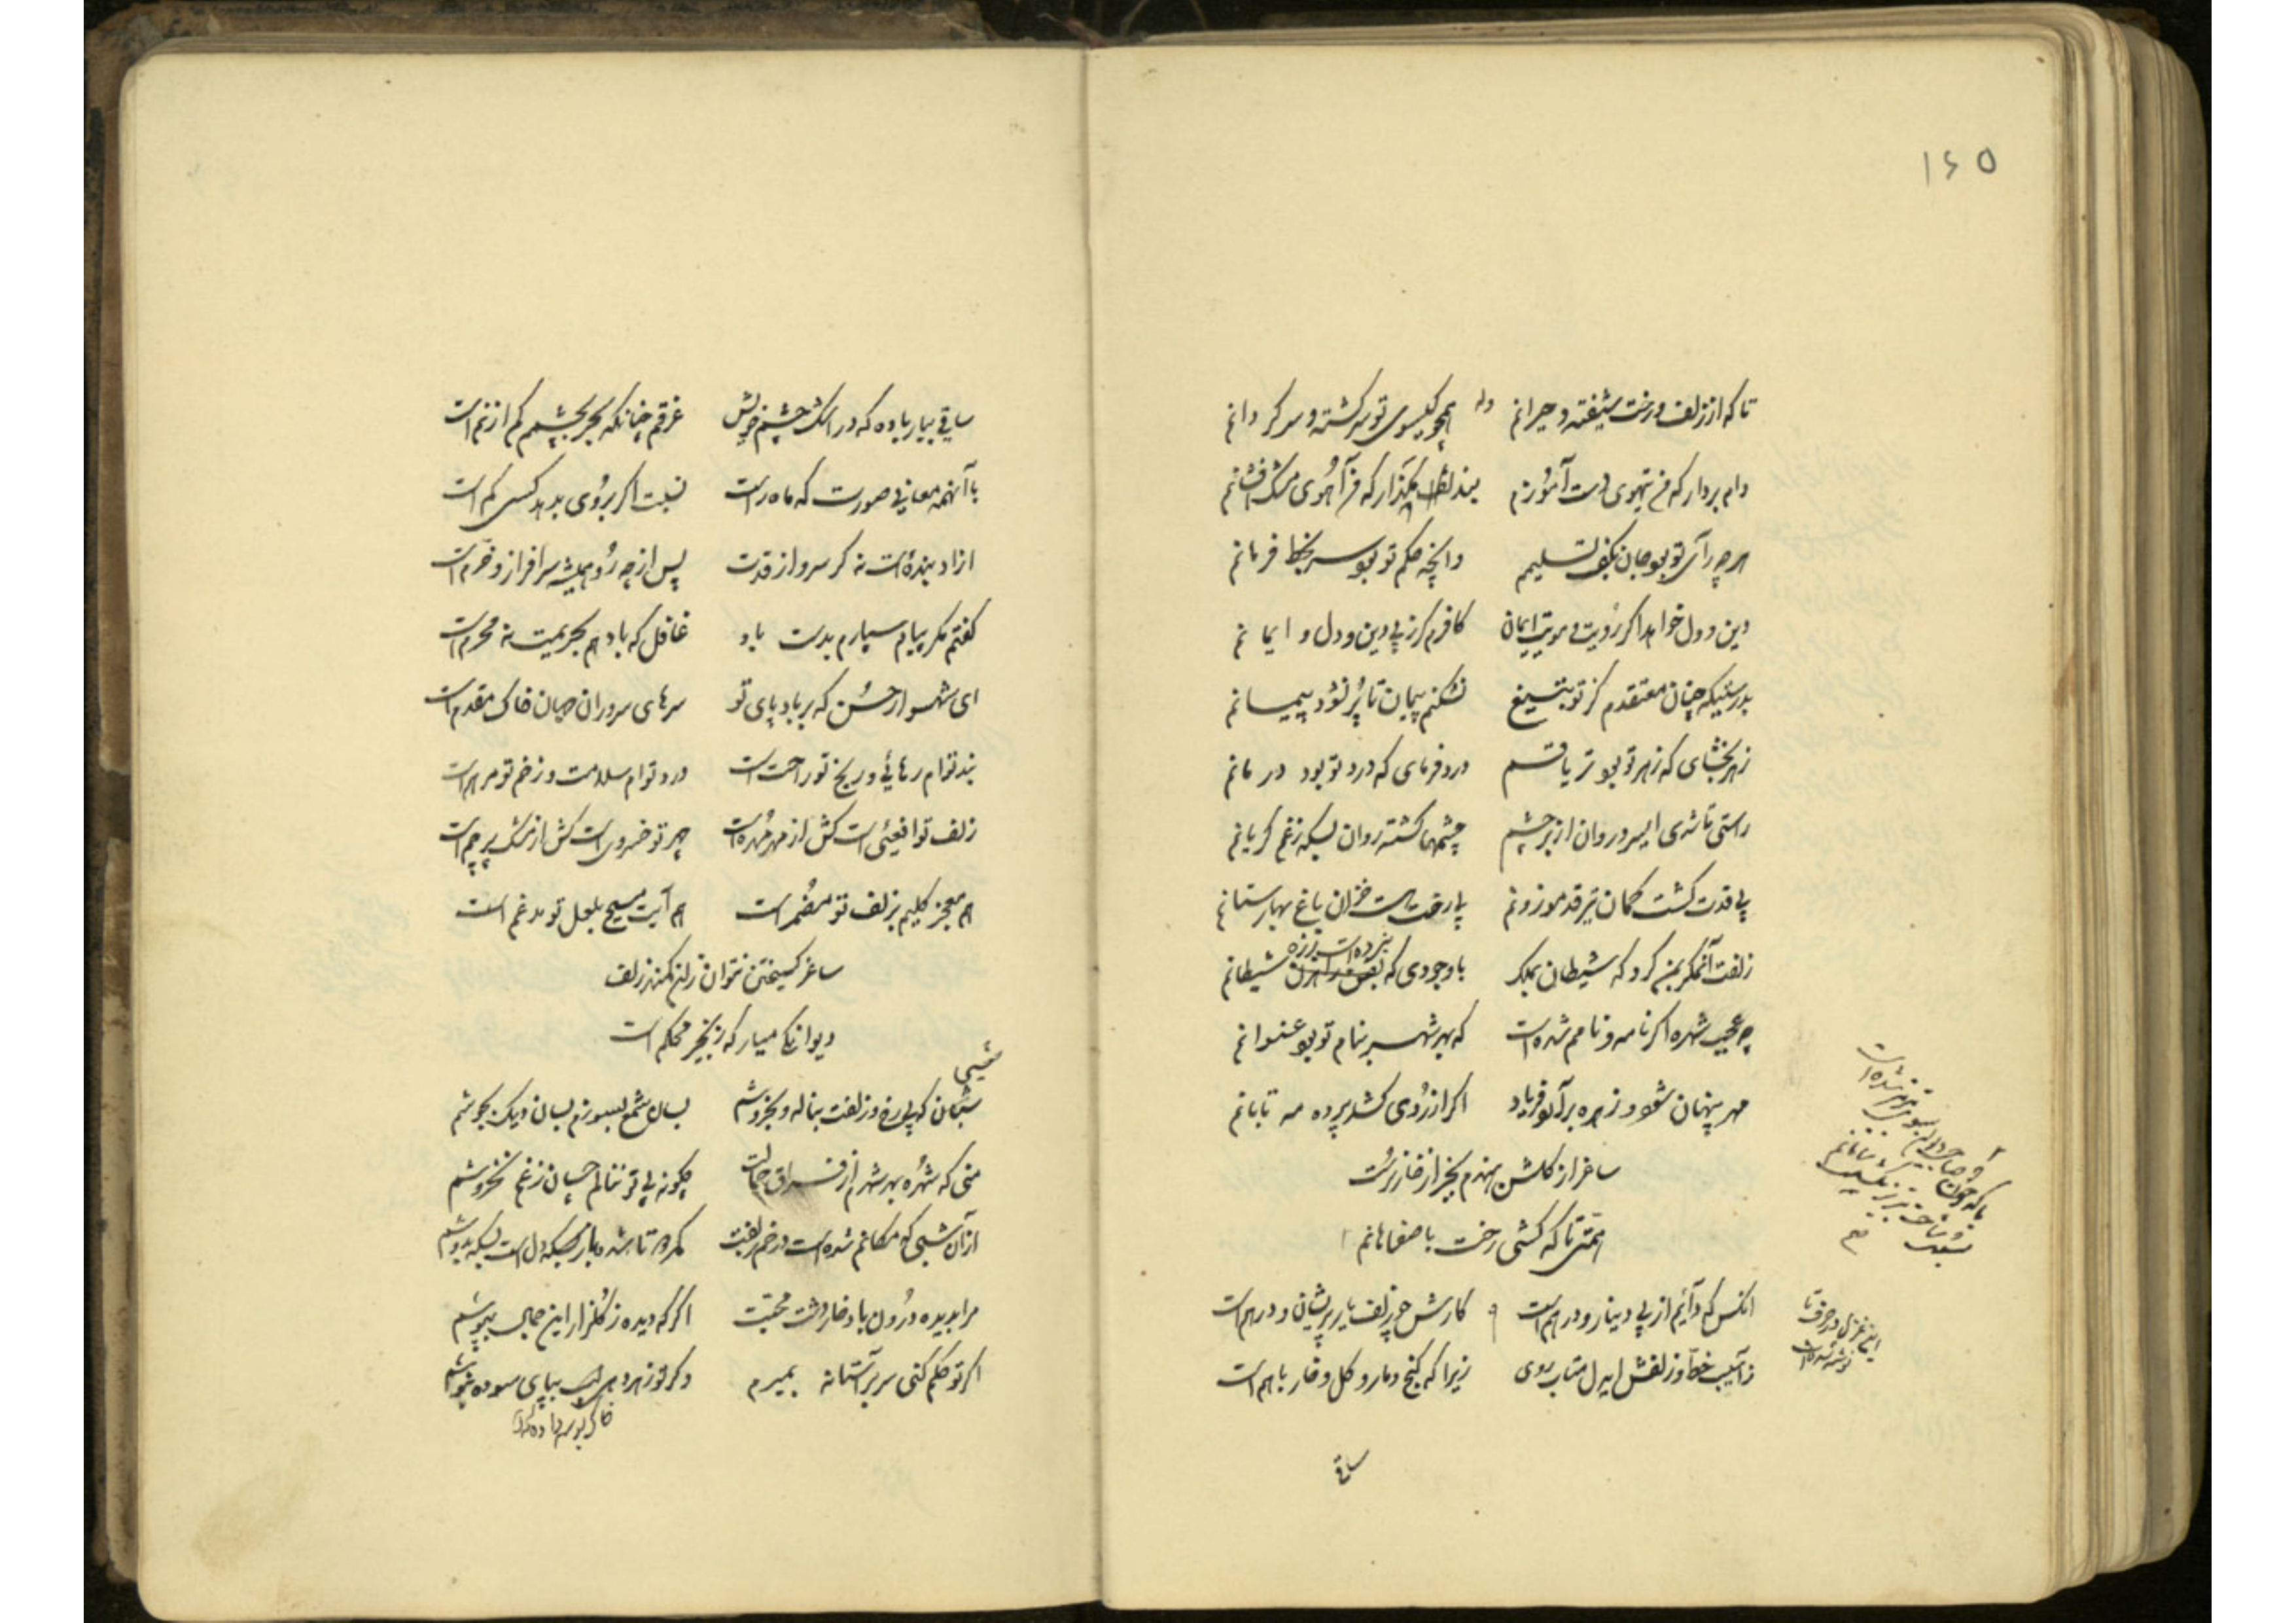 ۱۶۵
تا که از زلف و رخت شیفته و حیرانم وله همچو گیسوی تو سرگشته و سرگردانم
دام بردار که من تیهوی دست آموزم بند بگذار که من آهوی مشک افشانم
هرچه رای تو بود جان بکف تسلیمم وانچه حکم تو بود سر بخط فرمانم
دین و دل خواهد اگر رویت و مویت ایمان کافرم گر ز پی دین و دل و ایمانم
بدرستیکه چنان معتقدم کز تو بتیغ نشکنم پیمان تا پُر نشود پیمانم
زهر بخشای که زهر تو بود تریاقم درد فرمای که درد تو بود درمانم
راستی تا شدی ایسرو روان از بر چشم چشمها گشته روان بسکه ز غم گریانم
بی قدت گشت کمان تیر قد موزونم بی رخت هست خزان باغ بهارستانم
زلفت آنمکر بمن کرد که شیطان بملک با وجودی که شیطانم
نبرده است ز ره
چه عجب شهره اگر نامه و نامم شده است که بهر شهر بنام تو بود عنوانم
مهر پنهان شود و زهره برآرد فریاد اگر از رُوی کشد پرده مه تابانم
ساغر از گلشن بهدم بجز از خار نرست
همتی تا که کشی رخت باصفاهانم
آنکس که دآئم از پی دینار و درهم است کارش چو زلف یار پریشان و درهم است
ز آسیب خط و زلفش ایدل متاب روی زیرا که گنج و مار و گل و خار باهم است
این غزل در حرف تا
نوشته شده است
ساقی
ساقی بیار باده که در اشک چشم خویش غرقم چنانکه بحر بچشمم کم از نم است
با آنهمه معانی و صورت که ماه راست نسبت اگر بروی بدهد کسی کم است
ازاد بنده است نه گر سرو از قدت پس از چه رُو همیشه سرافراز و خرم است
گفتم مگر پیام سپارم بدست باد غافل که باد هم بحریمت نه محرم است
ای شهسوار حُسن که بر باد پای تو سرهای سروران جهان خاک مقدم است
بند توام رهائی و رنج تو راحت است درد توام سلامت و زخم تو مرهم است
زلف تو افعیئی است کش از مهر مُهره است چهر تو خسروی است کش از مشک پرچم است
هم معجز کلیم بزلف تو مُضمر است هم آیت مسیح بلعل تو مدغم است
ساغر گسیختن نتوان زان کمند زلف
دیوانگی میار که زنجیر محکم است
شبان که بی رخ و زلفت بناله و بخروشم بسان شمع بسوزم بسان دیک بجوشم
منی که شُهره بهر شهرم از فراق جمالت چگونه بی تو ننالم چسان ز غم نخروشم
از آن شبی که مکانم شده است در خم زلفت
مرا بدیده درُون باد خار دشت محبت اگر که دیده ز گلزار این جمال بپوشم
اگر تو حکم کنی سر بر آستانه بمیرم